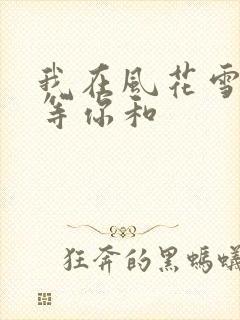 我在風花雪
等你和
狂奔的黑螞蟻